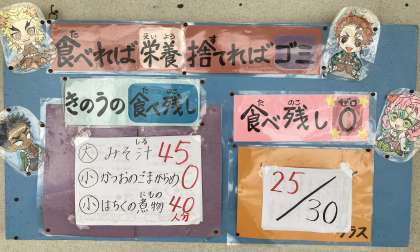 食べれば栄養捨てればゴミ
きのうの食べ残し
大 みそ汁 45
小 かつおのごまがらめ 0
小 はちくの煮物 40人分
食べ残し0
25/30
クラス